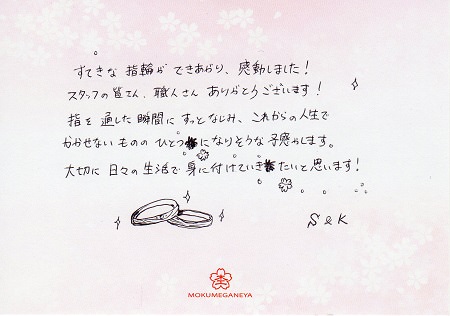 すてきな指輪ができあがり、感動しました！
スタッフの皆さん、職人さん ありがとうございます！
指を通した瞬間にすっとなじみ、これからの人生で
かかせないもののひとつになりそうな予感がします。
大切に日々の生活で身に付けていきたいと思います！
S & K
MOKUMEGANEYA